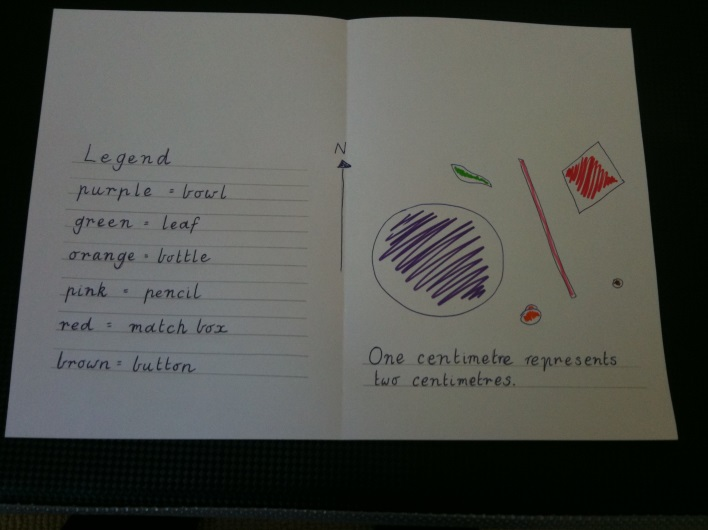 Legend
purple = bowl
green = leaf
orange = bottle
pink = pencil
red = match box
brown = button
N
One centimetre represents
two centimetres.